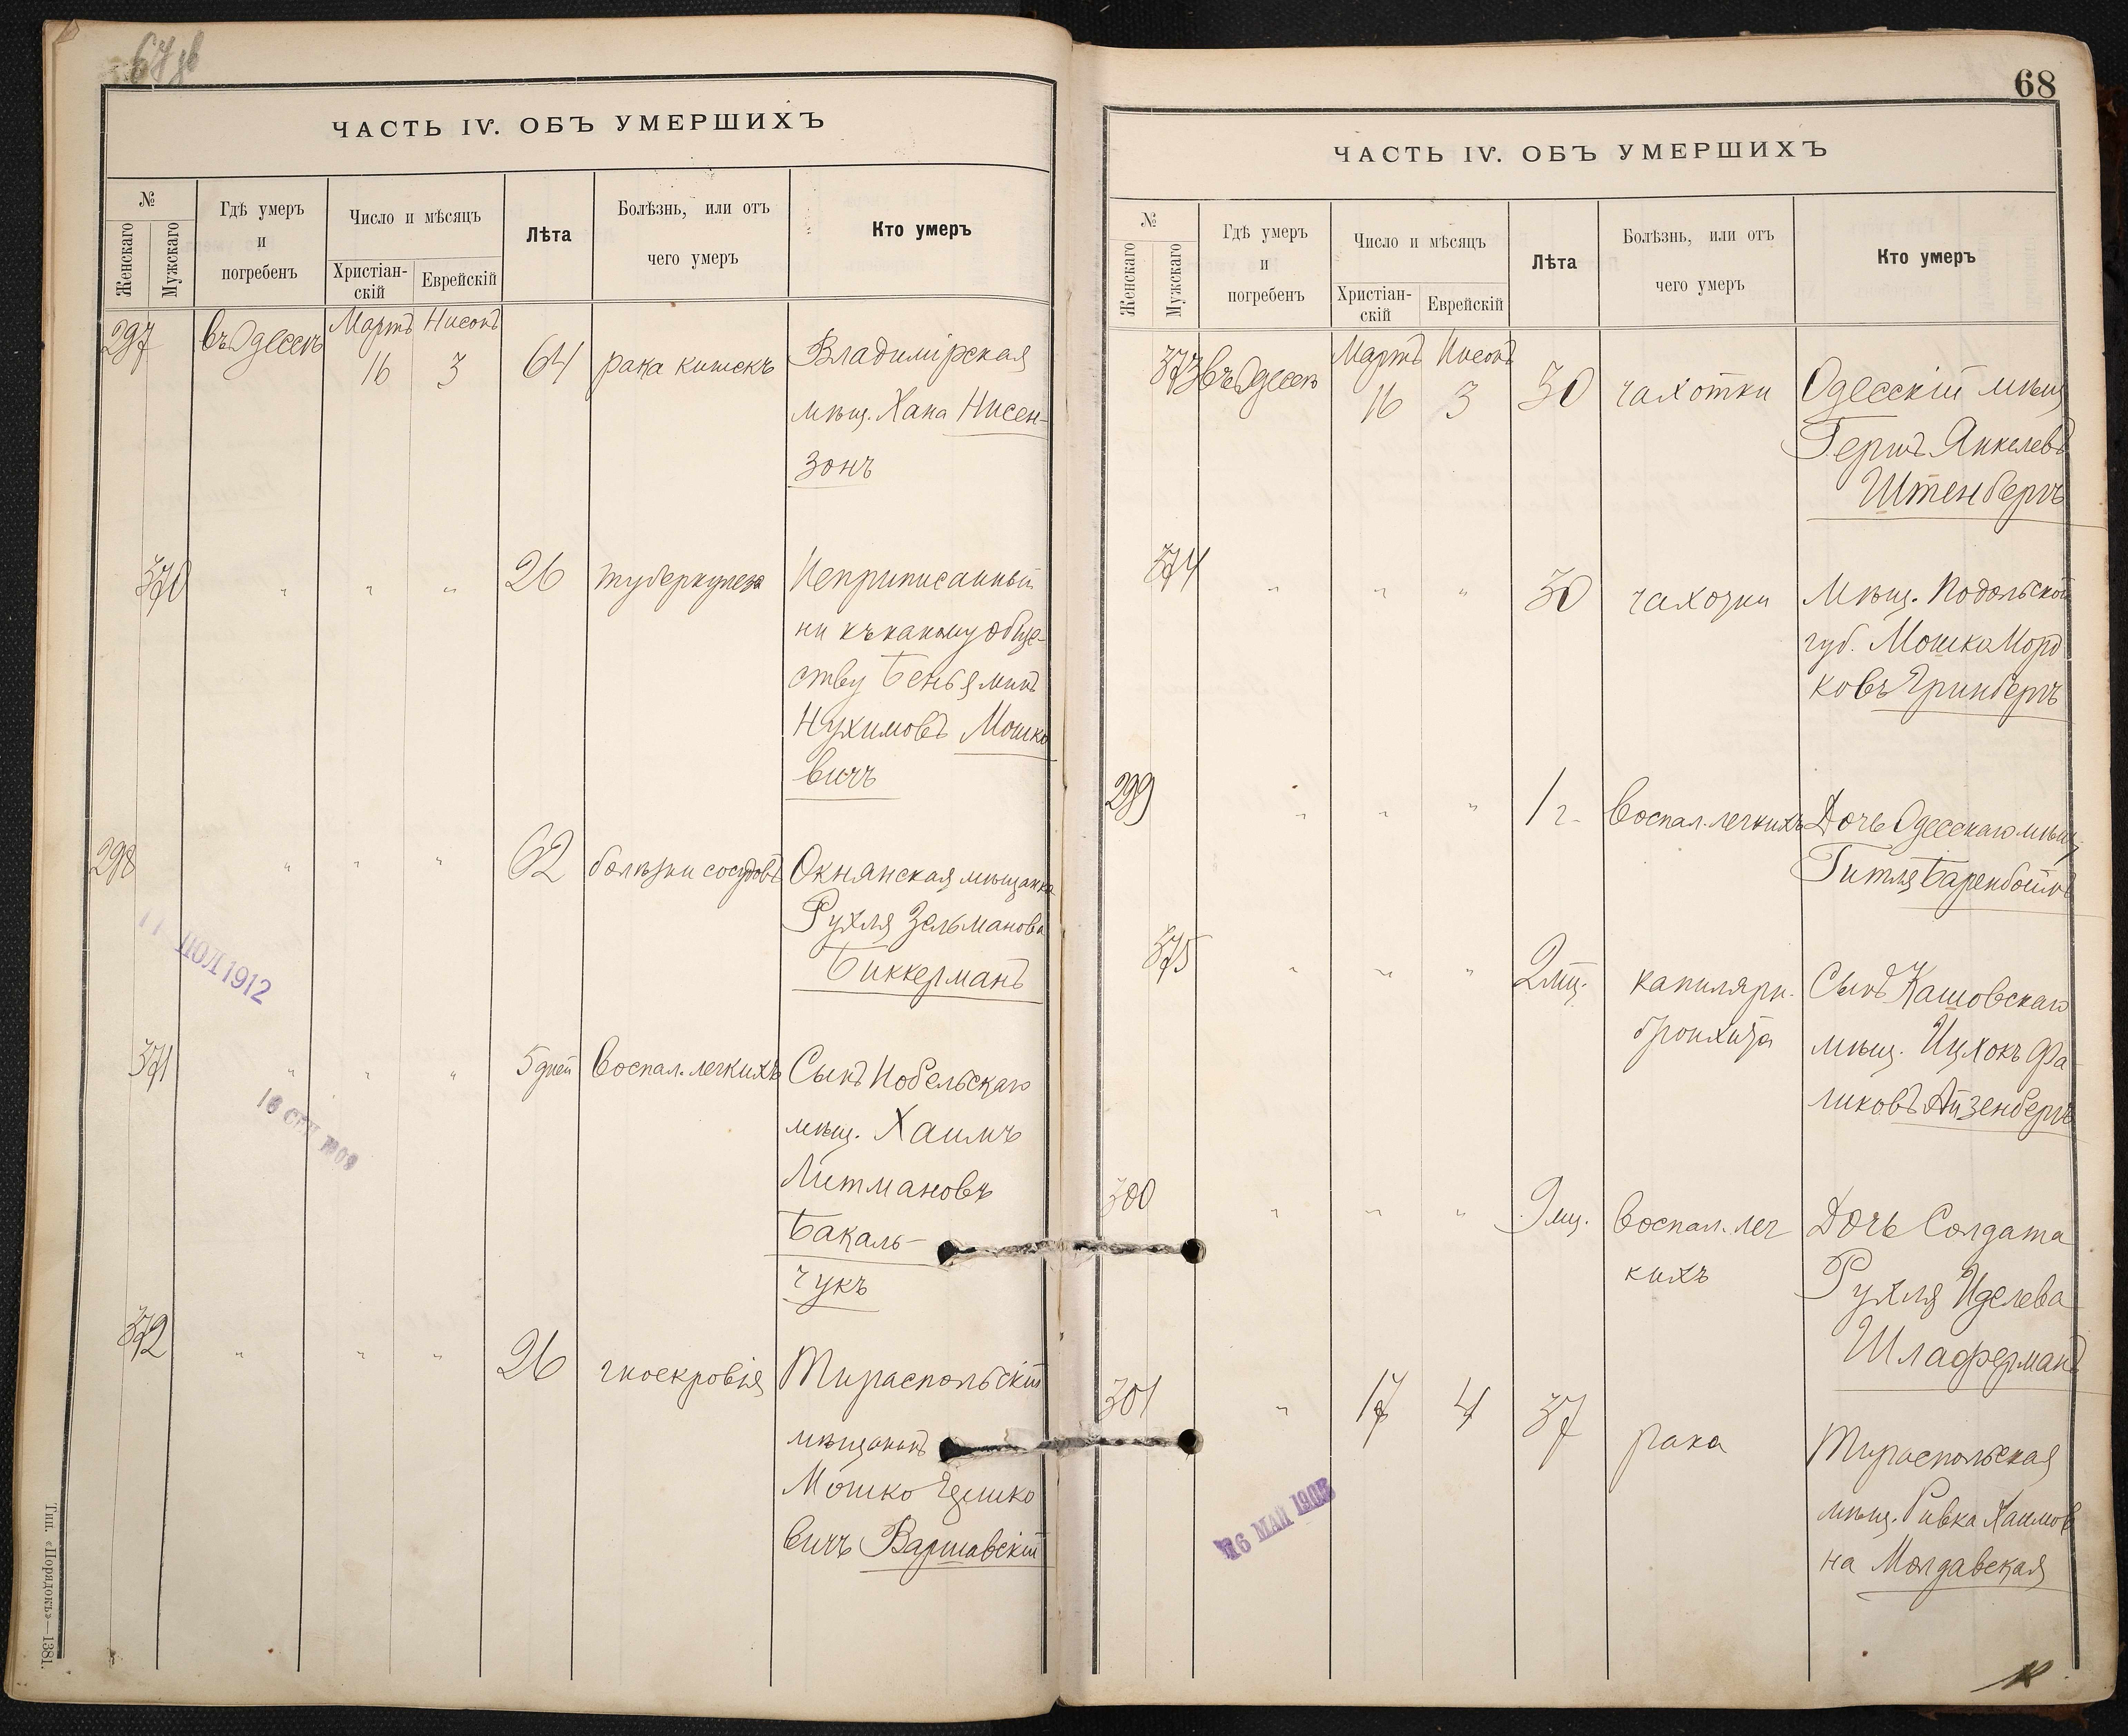 67 об
ЧАСТЬ IV. ОБЪ УМЕРШИХЪ
№
Женскаго
Мужскаго
Гдѣ умеръ
и
погребенъ
Число и мѣсяцъ
Христіан-
скій
Еврейскій
Лѣта
Болѣзнь, или отъ
чего умеръ
Кто умеръ
297 въ Одессѣ Мартъ 16 Нисонъ 3 64 рака кишекъ Владимірская
мѣщ. Хана Нисен-
зонъ
370 " " " 26 туберкулеза Неприписанный
ни къ какому обще-
ству Беньяминъ
Нухимовъ Мошко
вичъ
298 " " " 62 болѣзни сосудовъ Окнянская мѣщанка
Рухля Зельманова
Биккерманъ
11 ІЮЛ 1912
371 " " " 5 дней воспал. легкихъ Сынъ Нобельскаго
мѣщ. Хаимъ
Литмановъ
Бакаль-
чукъ
372 " " " 26 гноекровія Тираспольскій
мѣщанинъ
Мошко
вичъ Варшавскій
Тип. «Порядокъ»—1381.
68
ЧАСТЬ IV. ОБЪ УМЕРШИХЪ
№
Женскаго
Мужскаго
Гдѣ умеръ
и
погребенъ
Число и мѣсяцъ
Христіан-
скій
Еврейскій
Лѣта
Болѣзнь, или отъ
чего умеръ
Кто умеръ
373 въ Одессѣ Мартъ 16 Нисонъ 3 30 чахотки Одесскій мѣщ
Гершъ Янкелевъ
Штенбергъ
374 " " " 30 чахотки Мѣщ. Подольской
губ. Мошко Морд
ковъ Гринбергъ
299 " " " 1 г. воспал. легкихъ Дочь Одесскаго мѣщ
Гитля Баренбоймъ
375 " " " 2 мѣ. капилярн. Сынъ Кашовскаго
бронхита мѣщ. Ицхокъ Фа
ликовъ Айзенбергъ
300 " " " 9 мц. воспал. лег Дочь Солдата
кихъ Рухля Иделева
Шлаферманъ
301 " 17 4 37 рака Тираспольская
мѣщ. Ривка Хаимов
на Молдавская
16 МАЙ 1905